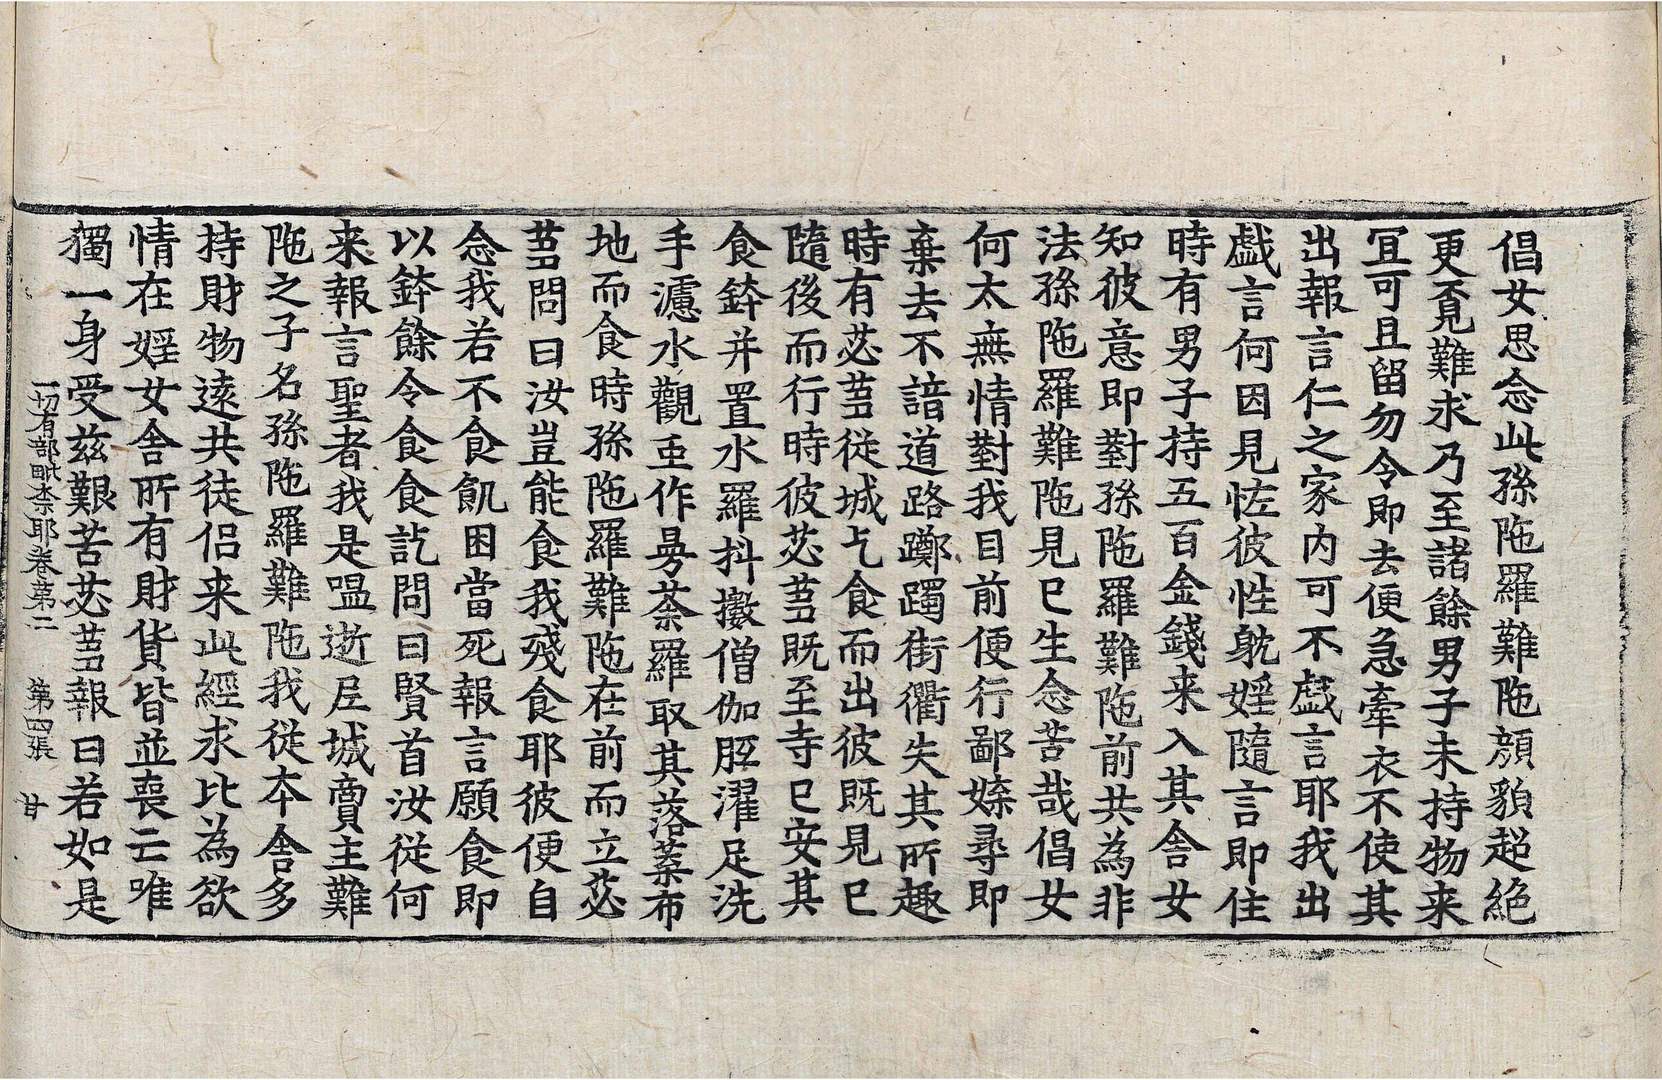 倡女思念此孫陁羅難陁顔貌超絶
更覔難求乃至諸餘男子未持物来
冝可且留勿令即去便急牽衣不使其
出報言仁之家內可不戱言耶我出
戱言何因見恠彼性躭婬隨言即住
時有男子持五百金錢来入其舎女
知彼意即對孫陁羅難陁前共為非
法孫陁羅難陁見已生念苦哉倡女
何太無情對我目前便行鄙媟尋即
棄去不諳道路躑躅街衢失其所趣
時有苾芻從城乞食而出彼既見已
隨後而行時彼苾芻既至寺已安其
食鉢并置水羅抖擻僧伽胝濯足洗
手濾水觀虫作曼荼羅取其落葉布
地而食時孫陁羅難陁在前而立苾
芻問曰汝豈能食我殘食耶彼便自
念我若不食飢困當死報言願食即
以鉢餘令食食訖問曰賢首汝從何
来報言聖者我是昷逝尼城賣主難
陁之子名孫陁羅難陁我從本舎多
持財物遠共徒侣来此經求比為欲
情在婬女舎所有財貨皆並喪亡唯
獨一身受茲艱苦苾芻報曰若如是
一切有部毗柰耶卷第二　第四張　甘